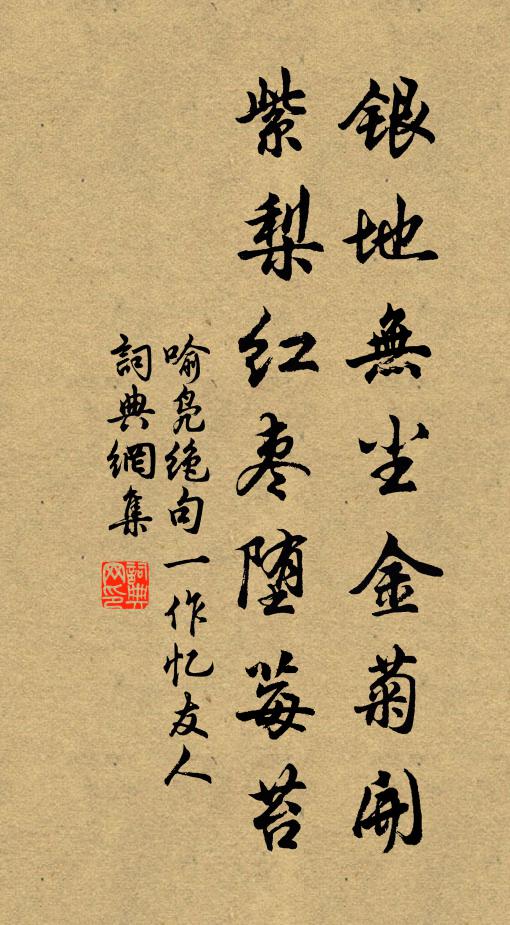 銀地無尘金菊開
紫梨红枣堕莓苔
喻凫绝句一作忆友人
詞典網集
詞典网印